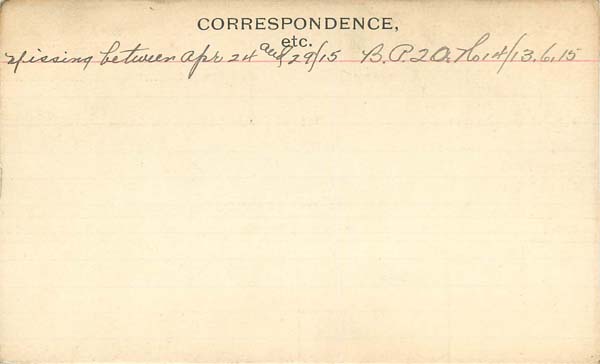 CORRESPONDENCE,
etc.
Missing between Apr 24 and 29/15 B.P.2O. No 14/13.6.15